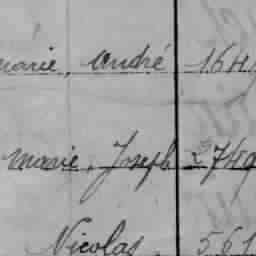 marie, André 164
marie, Joseph 2749
Nicolas. 561